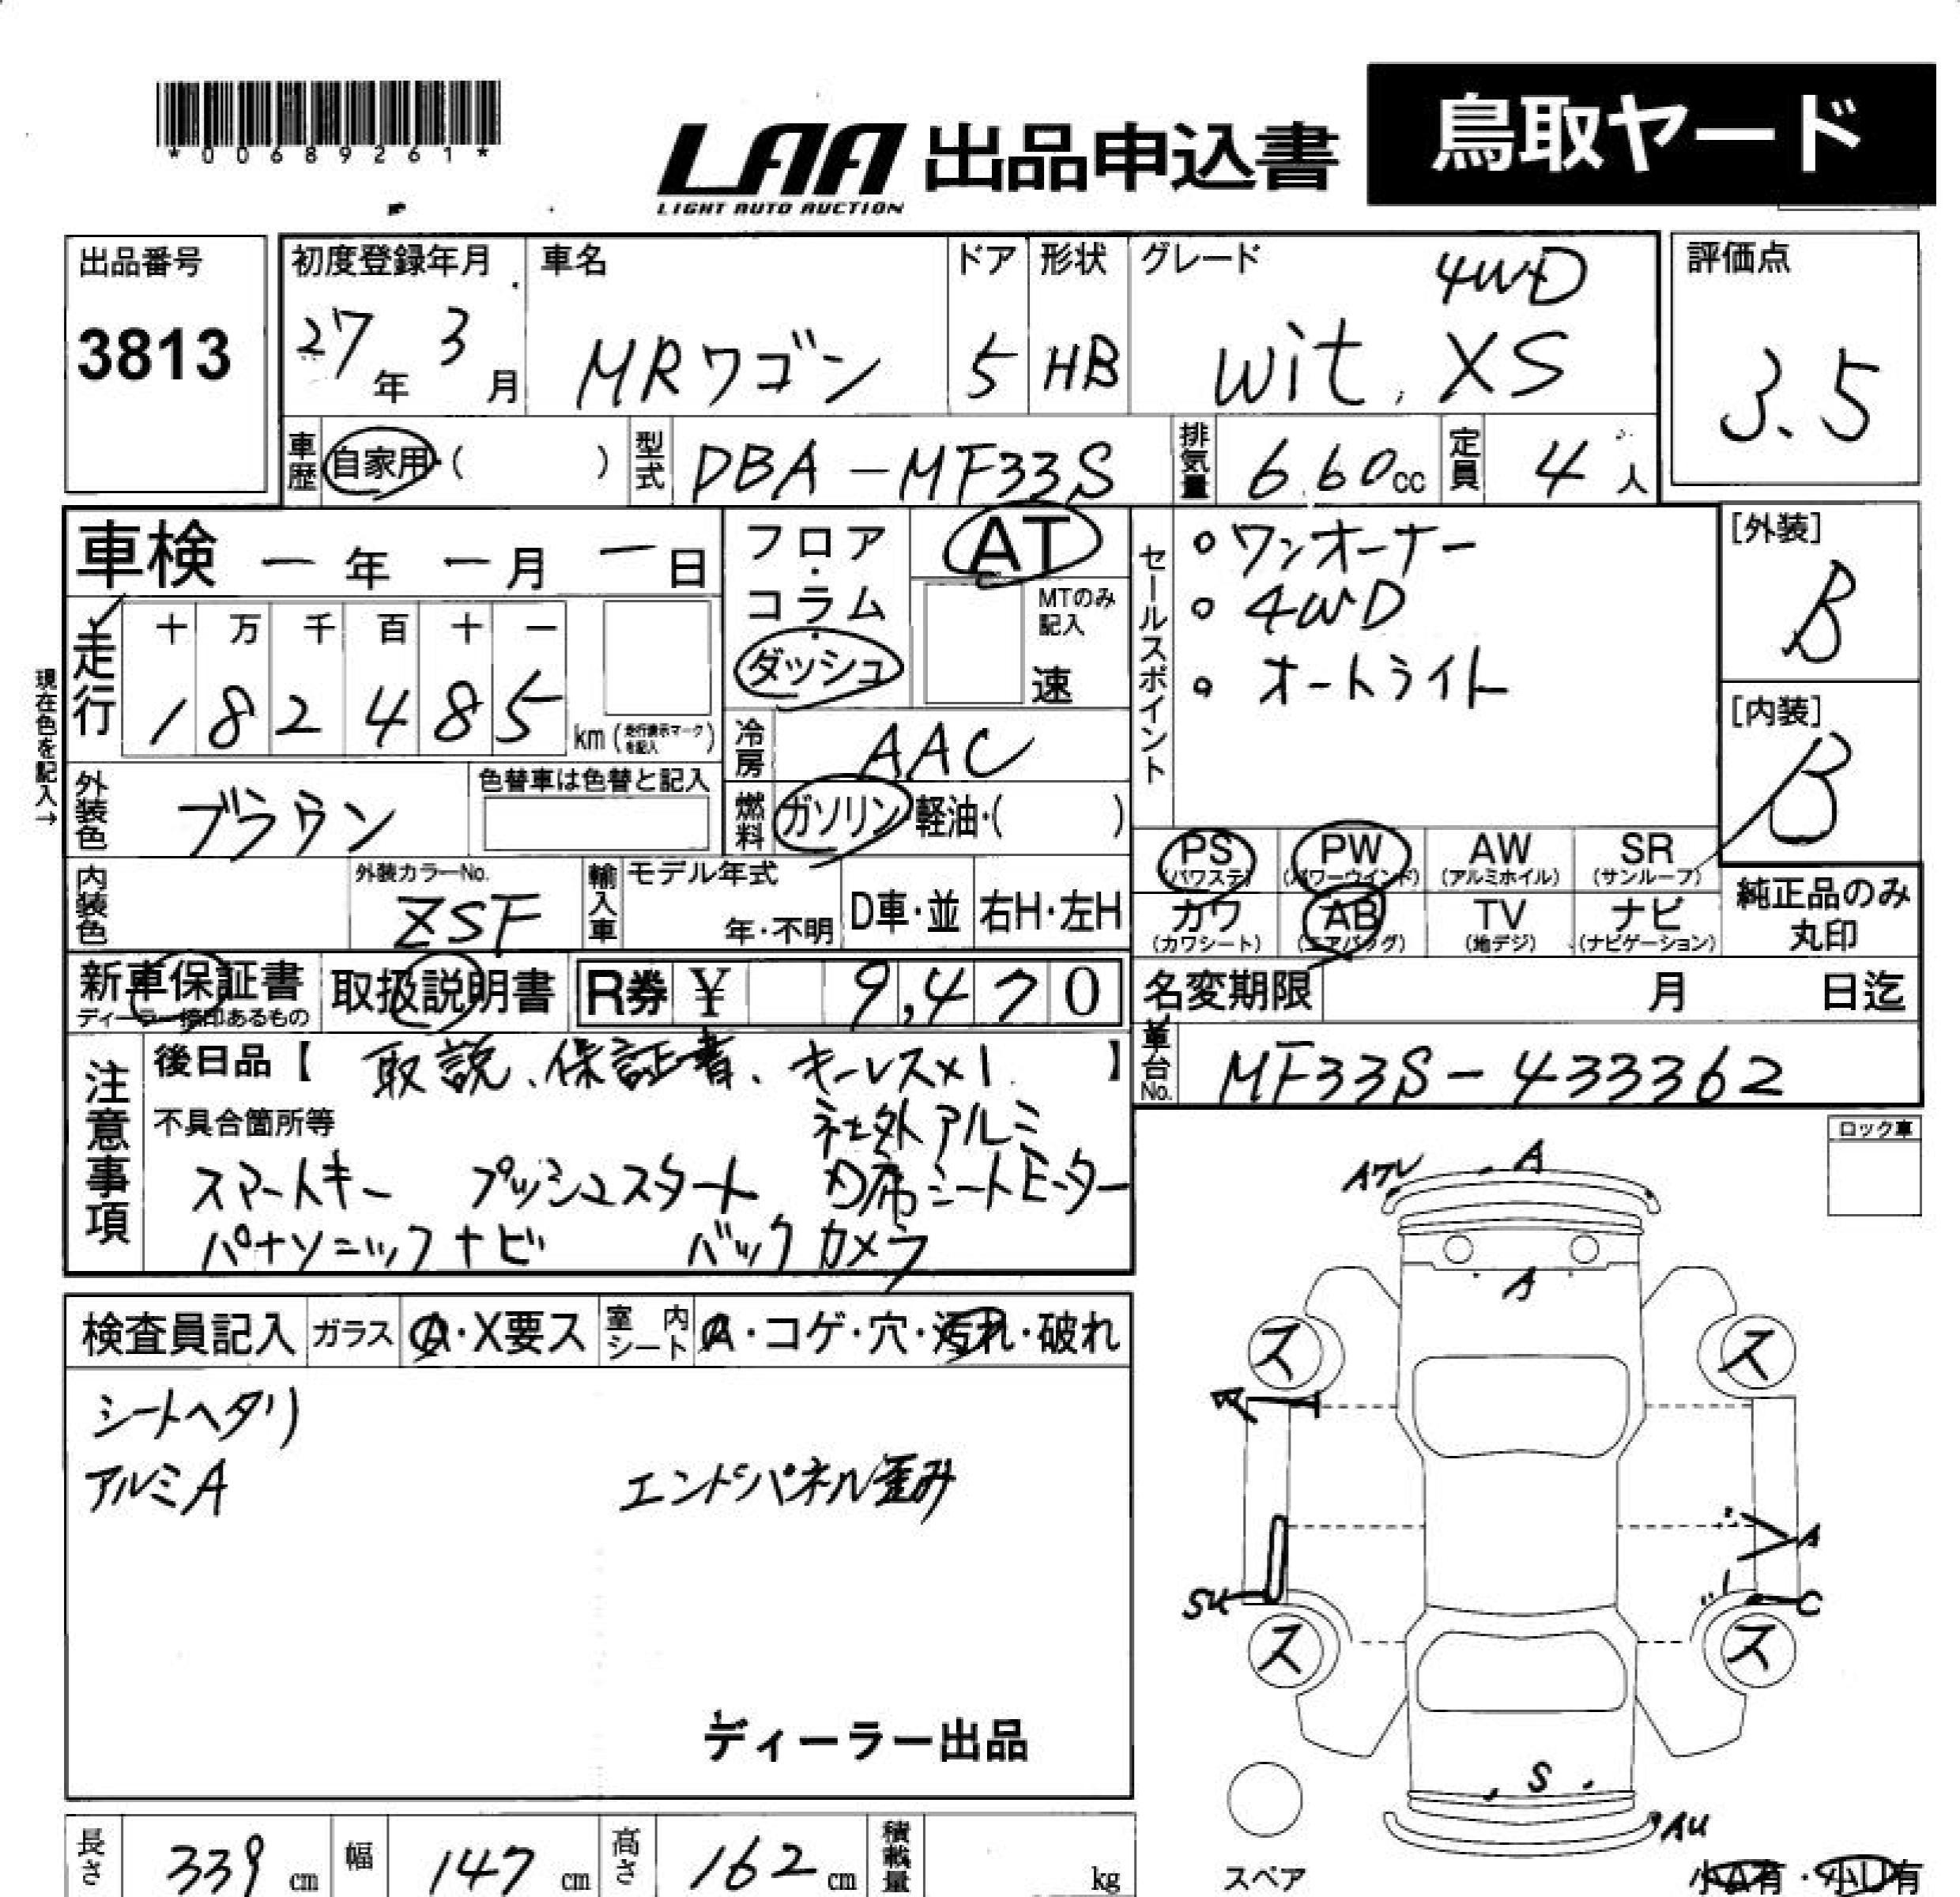 *00689261*
LAA 出品申込書 鳥取ヤード
LIGHT AUTO AUCTION
出品番号 3813
初度登録年月 27年 3月
車名 MRワゴン
ドア 5
形状 HB
グレード 4WD
wit. XS
評価点 3.5
車歴 自家用・( )
型式 DBA-MF33S
排気量 660cc
定員 4人
車検 ー年 ー月 ー日
フロア・コラム・ダッシュ
AT
MTのみ記入
速
セールスポイント
○ワンオーナー
○4WD
○オートライト
[外装] B
[内装] B
現在色を記入→
走行 十 万 千 百 十 一
182485 km (走行表示マークを記入)
冷房 AAC
外装色 ブラウン
色替車は色替と記入
燃料 ガソリン・軽油・( )
PS (パワステ) PW (パワーウインド) AW (アルミホイル) SR (サンルーフ)
カワ (カワシート) AB (エアバッグ) TV (地デジ) ナビ (ナビゲーション)
純正品のみ丸印
内装色
外装カラーNo. ZSF
輸入車 モデル年式 年・不明 D車・並 右H・左H
新車保証書 ディーラー捺印あるもの
取扱説明書
R券 ¥ 9,470
名変期限 月 日迄
車台No. MF33S-433362
注意事項
後日品【取説、保証書、キーレス×1.】
不具合箇所等 社外アルミ
スマートキー プッシュスタート 助席シートヒーター
パナソニックナビ バックカメラ
ロック車
検査員記入 ガラス A・X要ス 室内シート A・コゲ・穴・汚れ・破れ
シートヘタリ
アルミA エンドパネル歪み
ディーラー出品
Aワレ A
A
ス ス
A
SU C
ス ス
S
AU
スペア
小A有・小U有
長さ 339cm 幅 147cm 高さ 162cm 積載量 kg